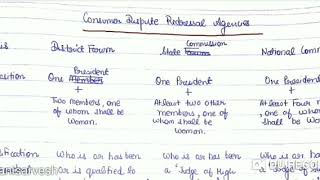 Consumer Dispute Redressal Agencies
District Forum
Commission
State Forum
National Comm
President
One Member
+
Two members, one
of whom shall be
woman.
One President
+
Atleast two other
members, one of
whom shall be
Woman.
One President
+
Atleast Four m
one of whom
shall be Wo
Who is or has been
or is qualified to
Who is or has been
a "Judge of High
Who is or has